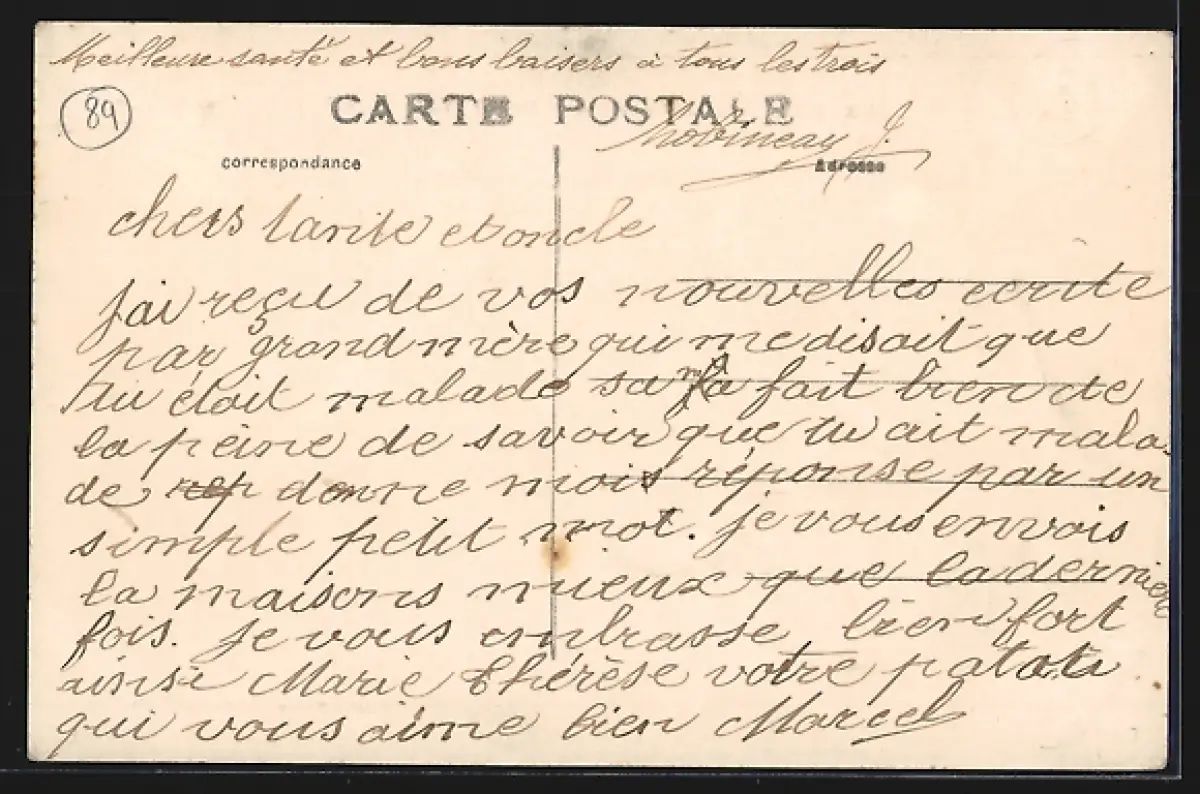 Meilleure santé et bons baisers à tous les trois
89
CARTE POSTALE
J.
correspondance
Adresse
chers tante et oncle
J'ai reçu de vos nouvelles ecrite
par grand mère qui me disait que
tu était malade sa m'a fait bien de
la peine de savoir que tu ait mala
de donne mois réponse par un
simple petit mot. je vous envois
la maisons mieux que la derniere
fois. Je vous embrasse bien fort
ainsi Marie Thérèse votre
qui vous aime bien Marcel